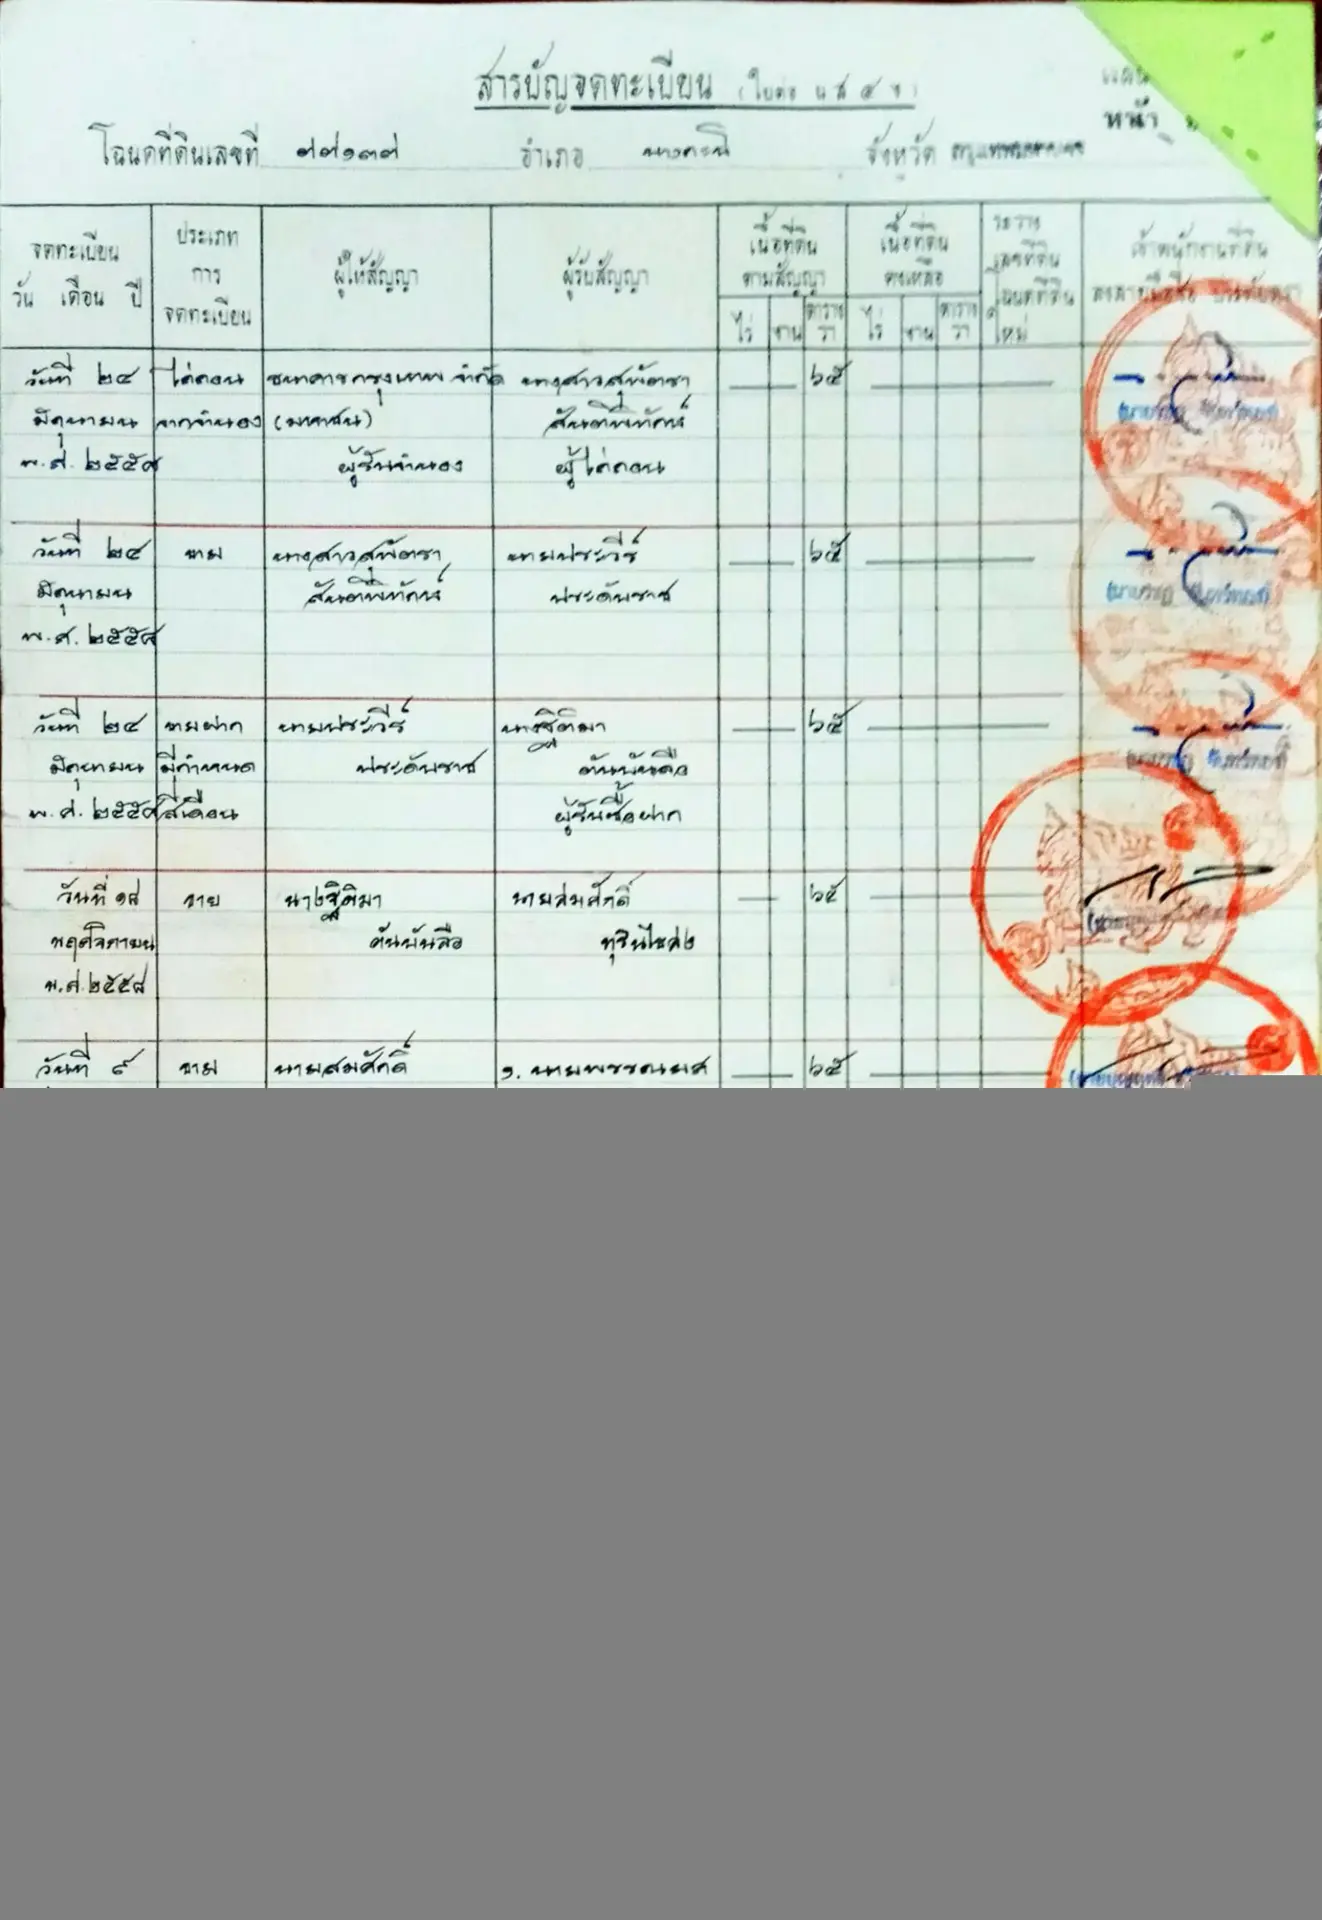 สารบัญจดทะเบียน (ใบต่อ น ส ๔ จ)
หน้า
โฉนดที่ดินเลขที่ ๗๗๑๓๗ อำเภอ บางกะปิ จังหวัด กรุงเทพมหานคร
จดทะเบียน
วัน เดือน ปี
ประเภท
การ
จดทะเบียน
ผู้ให้สัญญา
ผู้รับสัญญา
เนื้อที่ดิน
ตามสัญญา
ไร่ งาน ตาราง
วา
เนื้อที่ดิน
คงเหลือ
ไร่ งาน ตาราง
วา
ระวาง
เลขที่ดิน
โฉนดที่ดิน
ใหม่
เจ้าพนักงานที่ดิน
ลงลายมือชื่อ ประทับตรา
วันที่ ๒๔ ไถ่ถอน ธนาคารกรุงเทพ จำกัด นางสาวสุพัตรา ๖๕
มิถุนายน จากจำนอง (มหาชน) สันติพิทักษ์
พ.ศ. ๒๕๕๘ ผู้รับจำนอง ผู้ไถ่ถอน
วันที่ ๒๔ ขาย นางสาวสุพัตรา นายประวีร์ ๖๕
มิถุนายน สันติพิทักษ์ ประดับราช
พ.ศ. ๒๕๕๘
วันที่ ๒๔ ขายฝาก นายประวีร์ นางฐิติมา ๖๕
มิถุนายน มีกำหนด ประดับราช ตันบันลือ
พ.ศ. ๒๕๕๘ สี่เดือน ผู้รับซื้อฝาก
วันที่ ๑๘ ขาย นางฐิติมา นายสมศักดิ์ ๖๕
พฤศจิกายน ตันบันลือ
พ.ศ. ๒๕๕๘
วันที่ ๙ ขาย นายสมศักดิ์ ๑. นายพรรณยศ ๖๕